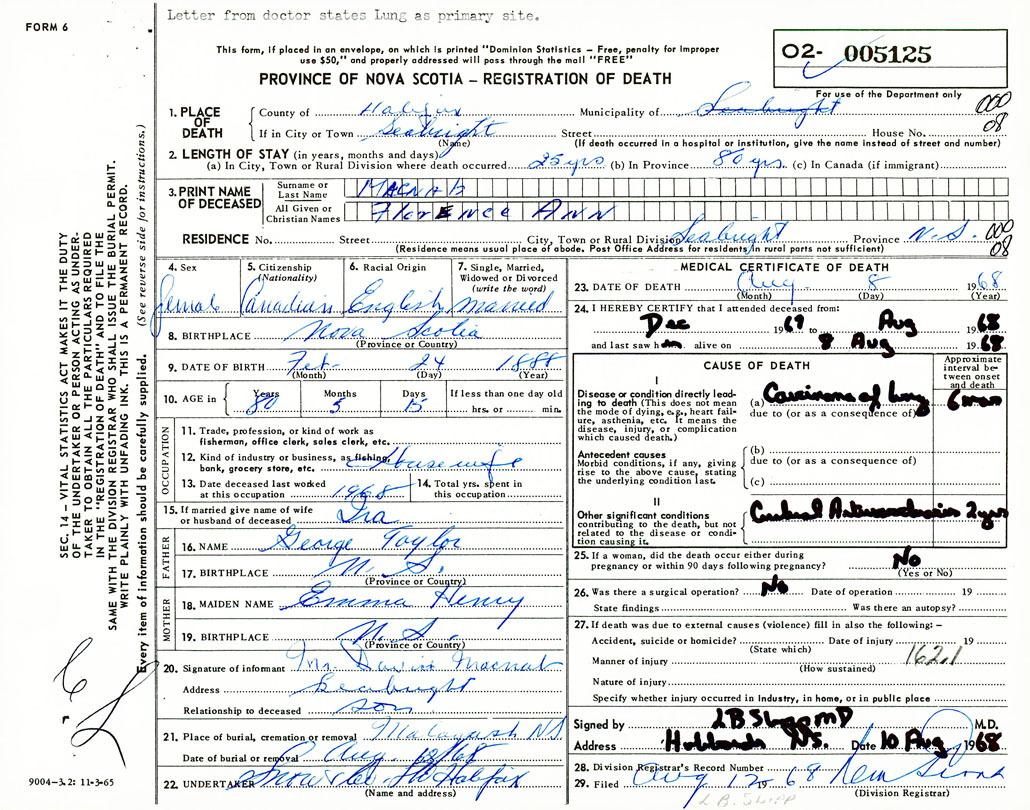 Letter from doctor states Lung as primary site.
FORM 6
This form, if placed in an envelope, on which is printed "Dominion Statistics – Free, penalty for improper
use $50," and properly addressed will pass through the mail "FREE"
PROVINCE OF NOVA SCOTIA – REGISTRATION OF DEATH
02- 005125
For use of the Department only
000
08
1. PLACE OF DEATH
County of Halifax Municipality of Seabright
If in City or Town Seabright Street House No.
(Name) (If death occurred in a hospital or institution, give the name instead of street and number)
2. LENGTH OF STAY (in years, months and days)
(a) In City, Town or Rural Division where death occurred 25 yrs (b) In Province 80 yrs. (c) In Canada (if immigrant)
3. PRINT NAME OF DECEASED
Surname or Last Name MACNAB
All Given or Christian Names Florence Ann
RESIDENCE No. Street City, Town or Rural Division Seabright Province N.S.
(Residence means usual place of abode. Post Office Address for residents in rural parts not sufficient)
000
08
4. Sex Female
5. Citizenship (Nationality) Canadian
6. Racial Origin English
7. Single, Married, Widowed or Divorced (write the word) married
8. BIRTHPLACE Nova Scotia
(Province or Country)
9. DATE OF BIRTH Feb- 24 1888
(Month) (Day) (Year)
10. AGE in Years 80 Months 5 Days 15 If less than one day old
hrs. or min.
OCCUPATION
11. Trade, profession, or kind of work as
fisherman, office clerk, sales clerk, etc.
12. Kind of industry or business, as fishing,
bank, grocery store, etc. Housewife
13. Date deceased last worked
at this occupation 1968
14. Total yrs. spent in
this occupation
15. If married give name of wife
or husband of deceased Ira
FATHER
16. NAME George Taylor
17. BIRTHPLACE N.S.
(Province or Country)
MOTHER
18. MAIDEN NAME Emma Henry
19. BIRTHPLACE N.S.
(Province or Country)
20. Signature of informant Macnab
Address Seabright
Relationship to deceased son
21. Place of burial, cremation or removal Malagash N.S.
Date of burial or removal Aug. /68
22. UNDERTAKER Snow Halifax
(Name and address)
MEDICAL CERTIFICATE OF DEATH
23. DATE OF DEATH Aug - 8 1968
(Month) (Day) (Year)
24. I HEREBY CERTIFY that I attended deceased from:
Dec 1967 to Aug 1968
and last saw h alive on 8 Aug 1968
CAUSE OF DEATH
Approximate interval between onset and death
I
Disease or condition directly leading to death (This does not
mean the mode of dying, e.g., heart failure, asthenia, etc. It means the
disease, injury, or complication
which caused death.)
(a) Carcinoma of lung 6 mos
due to (or as a consequence of)
Antecedent causes
Morbid conditions, if any, giving
rise to the above cause, stating
the underlying condition last.
(b)
due to (or as a consequence of)
(c)
II
Other significant conditions
contributing to the death, but not
related to the disease or condition causing it.
Cerebral Arteriosclerosis 2 yrs
25. If a woman, did the death occur either during
pregnancy or within 90 days following pregnancy? No
(Yes or No)
26. Was there a surgical operation? No Date of operation 19
State findings Was there an autopsy?
27. If death was due to external causes (violence) fill in also the following: –
Accident, suicide or homicide? Date of injury 19
(State which)
Manner of injury 162.1
(How sustained)
Nature of injury
Specify whether injury occurred in Industry, in home, or in public place
Signed by LB Slipp MD M.D.
Address Hubbards N.S. Date 10 Aug 1968
28. Division Registrar's Record Number
29. Filed Aug 12 1968
(Division Registrar)
L.B. Slipp
SEC. 14 – VITAL STATISTICS ACT MAKES IT THE DUTY
OF THE UNDERTAKER OR PERSON ACTING AS UNDERTAKER
TO OBTAIN ALL THE PARTICULARS REQUIRED
IN THE "REGISTRATION OF DEATH" AND TO FILE THE
SAME WITH THE DIVISION REGISTRAR WHO SHALL ISSUE THE BURIAL PERMIT.
WRITE PLAINLY WITH UNFADING INK. THIS IS A PERMANENT RECORD.
Every item of information should be carefully supplied. (See reverse side for instructions.)
9004–3.2: 11-3-65